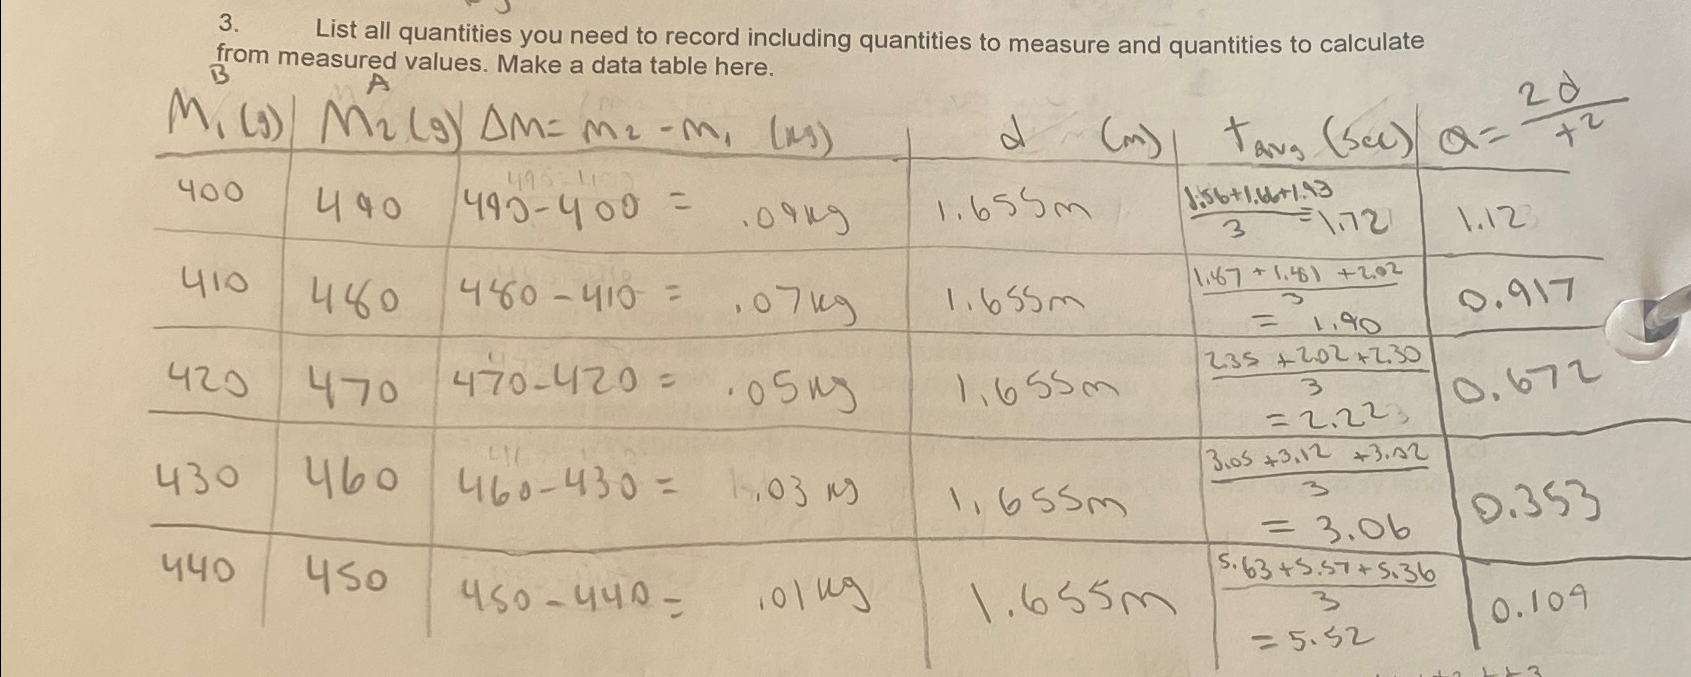 3. List all quantities you need to record including quantities to measure and quantities to calculate
from measured values. Make a data table here.
B A
M₁(g) M₂(g) ΔM = m₂ - m₁ (kg) d (m) tavg (sec) a = 2d/t²
400 490 490-400 = .09kg 1.655m (1.56+1.66+1.93)/3 = 1.72 1.12
410 480 480-410 = .07kg 1.655m (1.87+1.81+2.02)/3 = 1.90 0.917
420 470 470-420 = .05kg 1.655m (2.35+2.02+2.30)/3 = 2.22 0.672
430 460 460-430 = .03kg 1.655m (3.05+3.12+3.02)/3 = 3.06 0.353
440 450 450-440 = .01kg 1.655m (5.63+5.57+5.36)/3 = 5.52 0.109